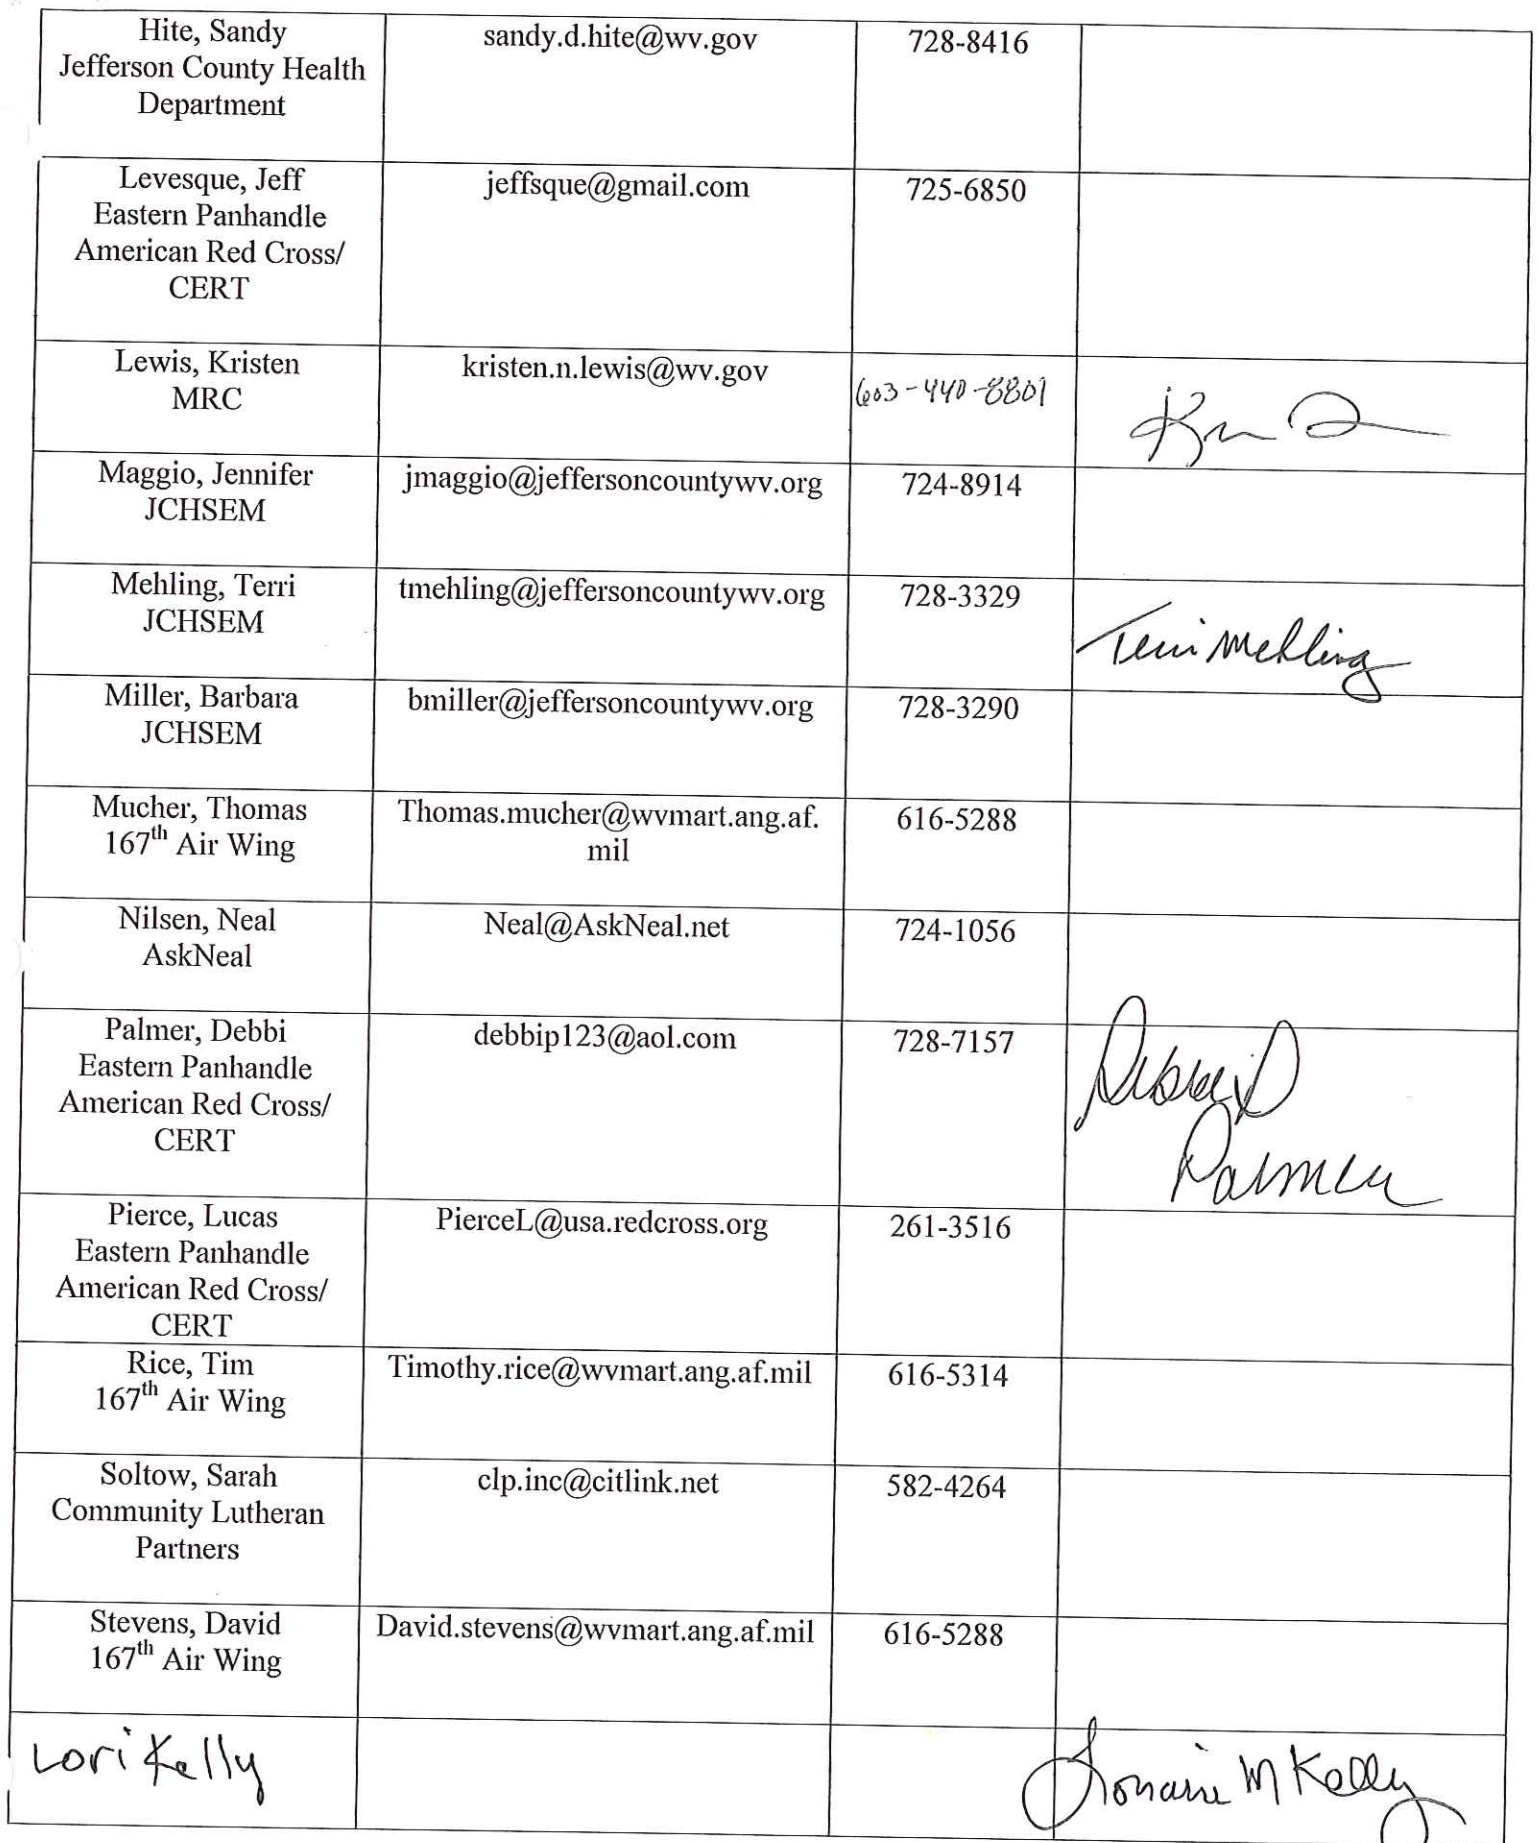 Hite, Sandy
Jefferson County Health
Department
sandy.d.hite@wv.gov
728-8416
Levesque, Jeff
Eastern Panhandle
American Red Cross/
CERT
jeffsque@gmail.com
725-6850
Lewis, Kristen
MRC
kristen.n.lewis@wv.gov
603-440-8801
Maggio, Jennifer
JCHSEM
jmaggio@jeffersoncountywv.org
724-8914
Mehling, Terri
JCHSEM
tmehling@jeffersoncountywv.org
728-3329
Terri Mehling
Miller, Barbara
JCHSEM
bmiller@jeffersoncountywv.org
728-3290
Mucher, Thomas
167th Air Wing
Thomas.mucher@wvmart.ang.af.
mil
616-5288
Nilsen, Neal
AskNeal
Neal@AskNeal.net
724-1056
Palmer, Debbi
Eastern Panhandle
American Red Cross/
CERT
debbip123@aol.com
728-7157
Debbi D
Palmer
Pierce, Lucas
Eastern Panhandle
American Red Cross/
CERT
PierceL@usa.redcross.org
261-3516
Rice, Tim
167th Air Wing
Timothy.rice@wvmart.ang.af.mil
616-5314
Soltow, Sarah
Community Lutheran
Partners
clp.inc@citlink.net
582-4264
Stevens, David
167th Air Wing
David.stevens@wvmart.ang.af.mil
616-5288
Lori Kelly
M Kelly